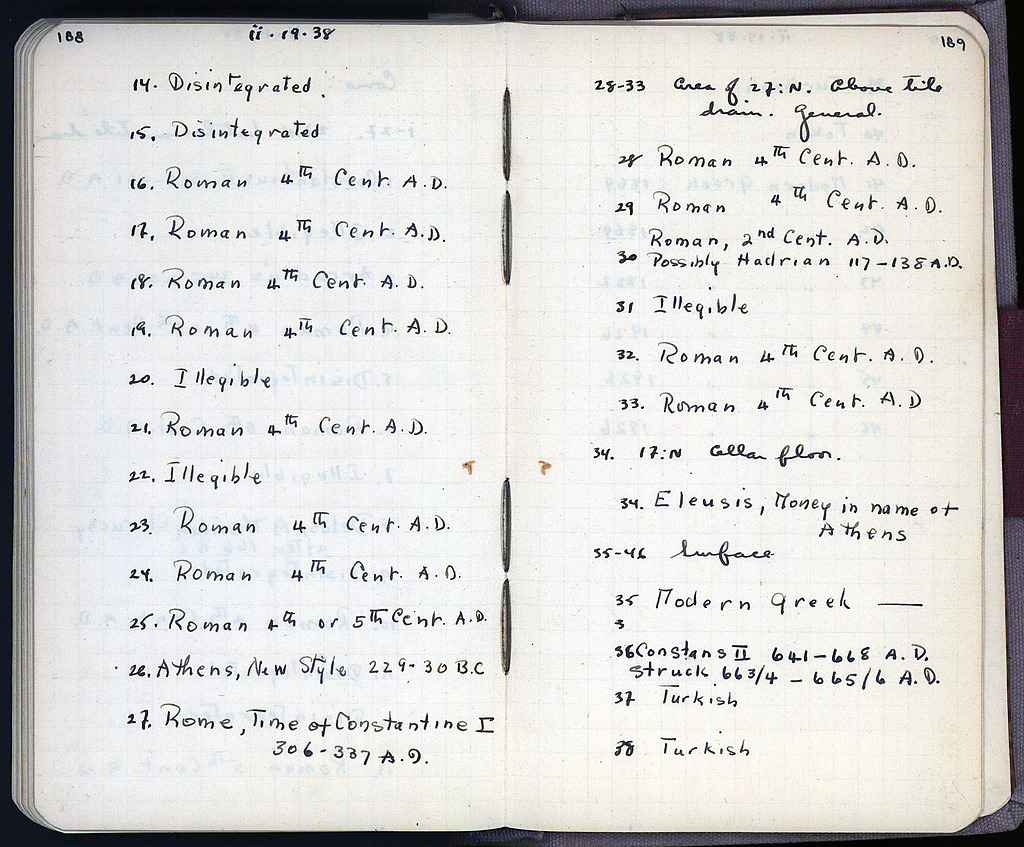 188
ii - 19 - 38
14. Disintegrated.
15. Disintegrated
16. Roman 4th Cent. A.D.
17. Roman 4th Cent. A.D.
18. Roman 4th Cent. A.D.
19. Roman 4th Cent. A.D.
20. Illegible
21. Roman 4th Cent. A.D.
22. Illegible
23. Roman 4th Cent. A.D.
24. Roman 4th Cent. A.D.
25. Roman 4th or 5th Cent. A.D.
26. Athens, New Style 229-30 B.C
27. Rome, Time of Constantine I
306-337 A.D.
189
28-33 Area of 27:N. Above tile
drain. General.
28 Roman 4th Cent. A.D.
29 Roman 4th Cent. A.D.
Roman, 2nd Cent. A.D.
30 Possibly Hadrian 117-138 A.D.
31 Illegible
32. Roman 4th Cent. A.D.
33. Roman 4th Cent. A.D
34. 17:N Cellar floor.
34. Eleusis, Money in name of
Athens
35-46 Surface
35 Modern Greek —
3
36 Constans II 641-668 A.D.
Struck 663/4 - 665/6 A.D.
37 Turkish
38 Turkish